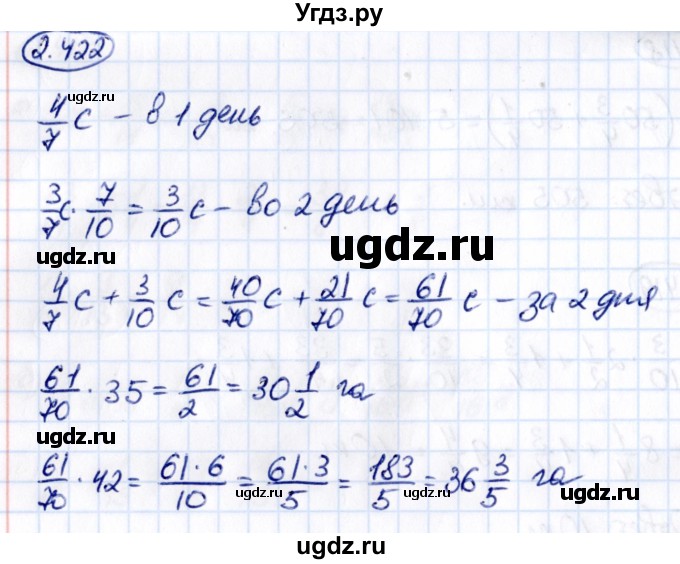 Угдз.ру
2.422
ugdz.ru ugdz.ru
4/7 c – в 1 день
3/7 c · 7/10 = 3/10 c – во 2 день
ugdz.ru ugdz.ru
ugdz.ru
4/7 c + 3/10 c = 40/70 c + 21/70 c = 61/70 c – за 2 дня
ugdz.ru
61/70 · 35 = 61/2 = 30 1/2 га
ugdz.ru ugdz.ru
61/70 · 42 = 61·6/10 = 61·3/5 = 183/5 = 36 3/5 га
ugdz.ru ugdz.ru ugdz.ru ugdz.ru
ugdz.ru